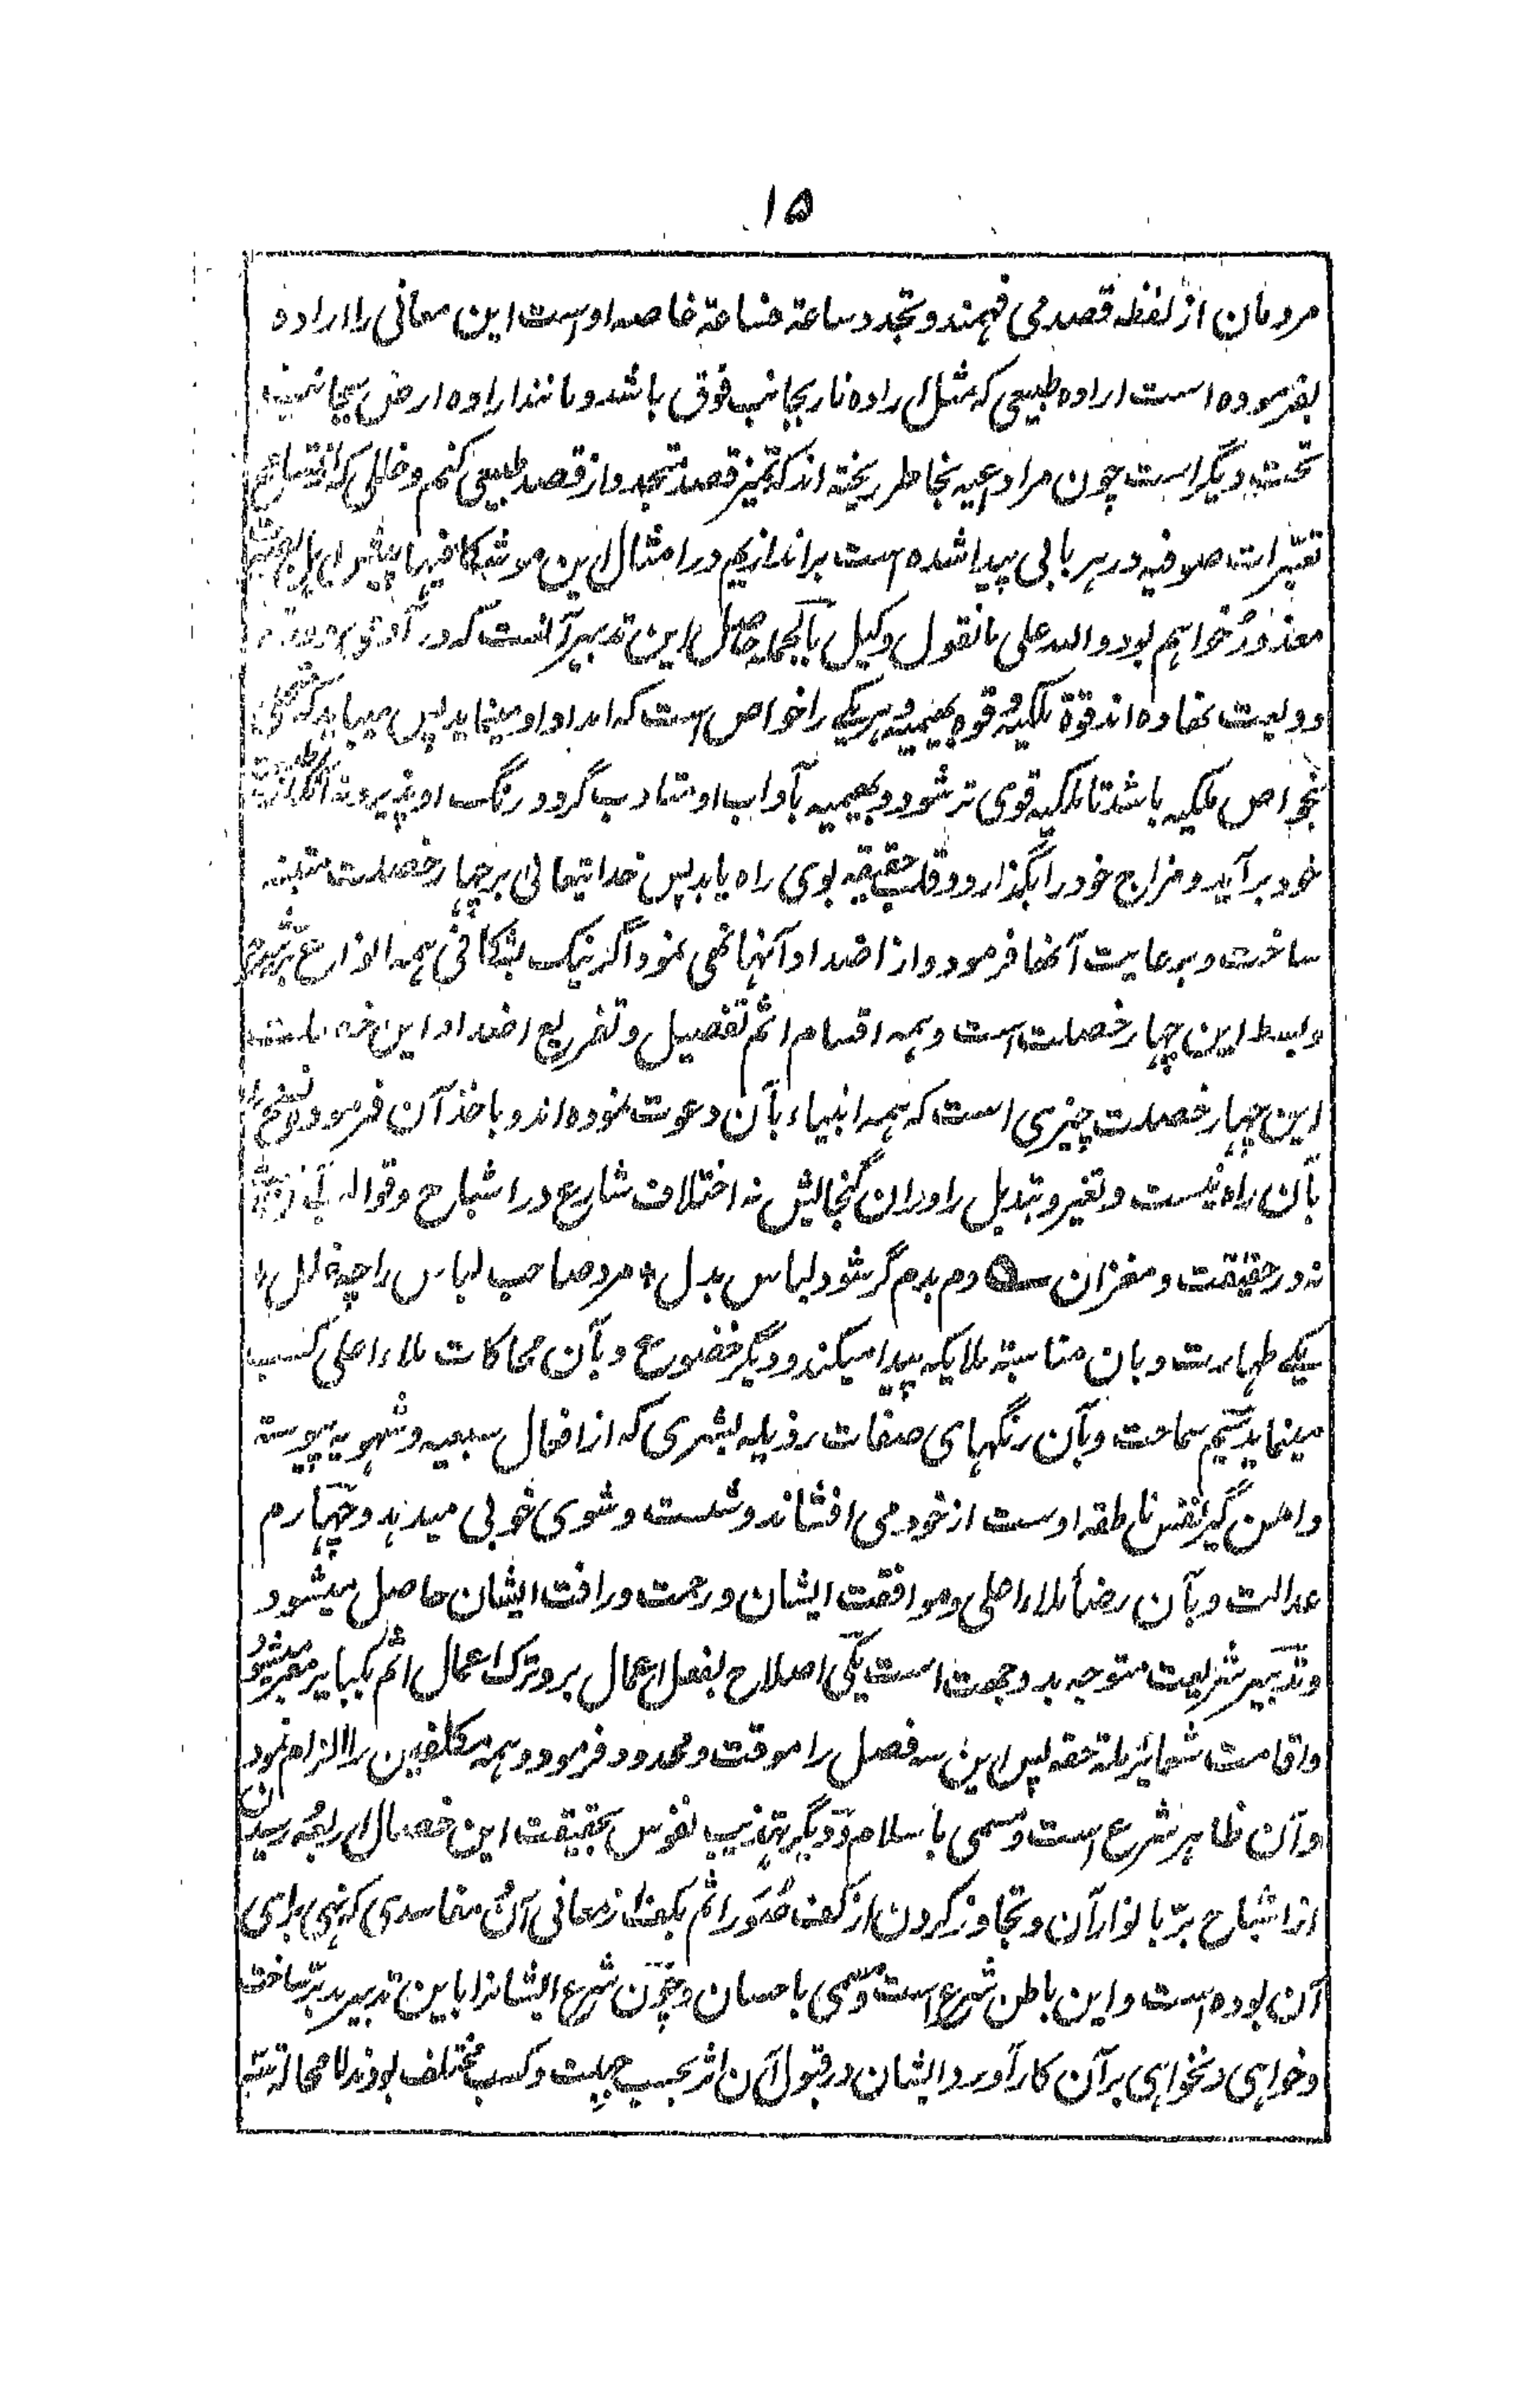 ۱۵
مردمان از لفظ قصد می فهمند و تجدد ساعة فساعة خاصه اوست این معانی را اراده
بفرموده است اراده طبیعی که مثل اراده نار بجانب فوق باشد و مانند اراده ارض بجانب
تحت دیگر است چون مرا داعیه بخاطر ریخته اند که تمیز قصد متجدد از قصد طبیعی کنم و خللی که از
تعبیرات صوفیه در هر بابی پیدا شده است براندازیم در امثال این موشگافیها پیش
معذور خواهم بود والله علی ما نقول وکیل بالجمله حاصل این تدبیر آنست که در آدمی دو قوت
ودیعت نهاده اند قوة ملکیه و قوه بهیمیه و هر یکی را خواص است که امداد او مینماید پس میباید که
بخواص ملکیه باشد تا ملکیه قوی تر شود و بهیمیه بآداب او متادب گردد و رنگ او پذیرد نه آنکه از
خود برآید و مزاج خود را بگذارد و قلب حقیقه بوی راه یابد پس خدایتعالی بر چهار خصلت متنبه
ساخت و برعایت آنها فرمود و از اضداد آنها نهی نمود اگر نیک بشگافی همه انواع بر شرح
و بسط این چهار خصلت است و همه اقسام اثم تفصیل و تفریع اضداد این خصلت
این چهار خصلت چیزی است که همه انبیاء بآن دعوت نموده اند و باخذ آن فرموده نسخ را
بآن راه نیست و تغیر و تبدیل را در آن گنجایش نه اختلاف شرایع در اشباح و قوالب
نه در حقیقت و مغز آن ے دم بدم گر شود لباس بدل * مرد صاحب لباس را چه خلل *
یکے طهارت و بان مناسبة ملایکه پیدا میکند و دیگر خضوع و بآن محاکات ملاء اعلی کسب
مینماید سیم سماحت و بآن رنگهای صفات رذیله بشری که از افعال سبعیه و شهویه پیوسته
دامن گیر نفس ناطقه اوست از خود می افشاند و شست و شوی خوبی میدهد و چهارم
عدالت و بآن رضأ ملاء اعلی و موافقت ایشان و رحمت و رافت ایشان حاصل میشود
و تدبیر شریعت متوجه بدو جهت است یکی اصلاح بفعل اعمال بر و ترک اعمال اثم بکبایر میشود
و اقامت شعائر ملة حقه پس این سه فصل را موقت و محدود فرمود و همه مکلفین را الزام نمود
و آن ظاهر شرع است و مسمی باسلام و دیگر تهذیب نفوس بحقیقت این خصال اربعه رسیدن
از اشباح بر بانوار آن و تجاوز کردن از کف صُوَر اثم بکف از معانی آن مفاسدی که نهی برای
آن بوده است و این باطن شرع است و مسمی باحسان و چون شرع ایشانرا باین تدبیر مدبر ساخت
و خواهی نخواهی بر آن کار آورد و ایشان در قبول آن اثر بحسب جبلت و کسب مختلف بودند لا محاله